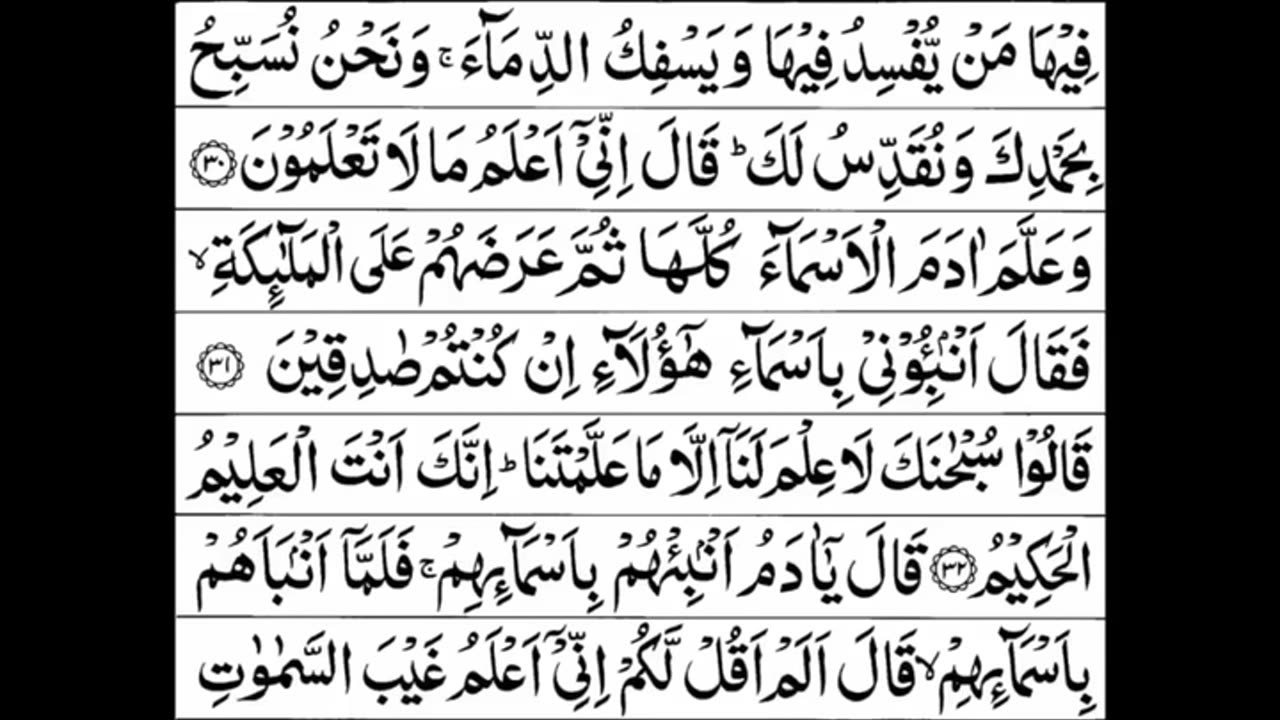 فِيْهَا مَنْ يُّفْسِدُ فِيْهَا وَيَسْفِكُ الدِّمَآءَ ۚ وَنَحْنُ نُسَبِّحُ
بِحَمْدِكَ وَنُقَدِّسُ لَكَ ؕ قَالَ اِنِّیْۤ اَعْلَمُ مَا لَا تَعْلَمُوْنَ ﴿۳۰﴾
وَعَلَّمَ اٰدَمَ الْاَسْمَآءَ كُلَّهَا ثُمَّ عَرَضَهُمْ عَلَى الْمَلٰٓئِكَةِ ۙ
فَقَالَ اَنْۢبِـُٔوْنِیْ بِاَسْمَآءِ هٰۤؤُلَآءِ اِنْ كُنْتُمْ صٰدِقِيْنَ ﴿۳۱﴾
قَالُوْا سُبْحٰنَكَ لَا عِلْمَ لَنَاۤ اِلَّا مَا عَلَّمْتَنَا ؕ اِنَّكَ اَنْتَ الْعَلِيْمُ
الْحَكِيْمُ ﴿۳۲﴾ قَالَ يٰۤاٰدَمُ اَنْۢبِئْهُمْ بِاَسْمَآئِهِمْ ۚ فَلَمَّاۤ اَنْۢبَاَهُمْ
بِاَسْمَآئِهِمْ ۙ قَالَ اَلَمْ اَقُلْ لَّكُمْ اِنِّیْۤ اَعْلَمُ غَيْبَ السَّمٰوٰتِ